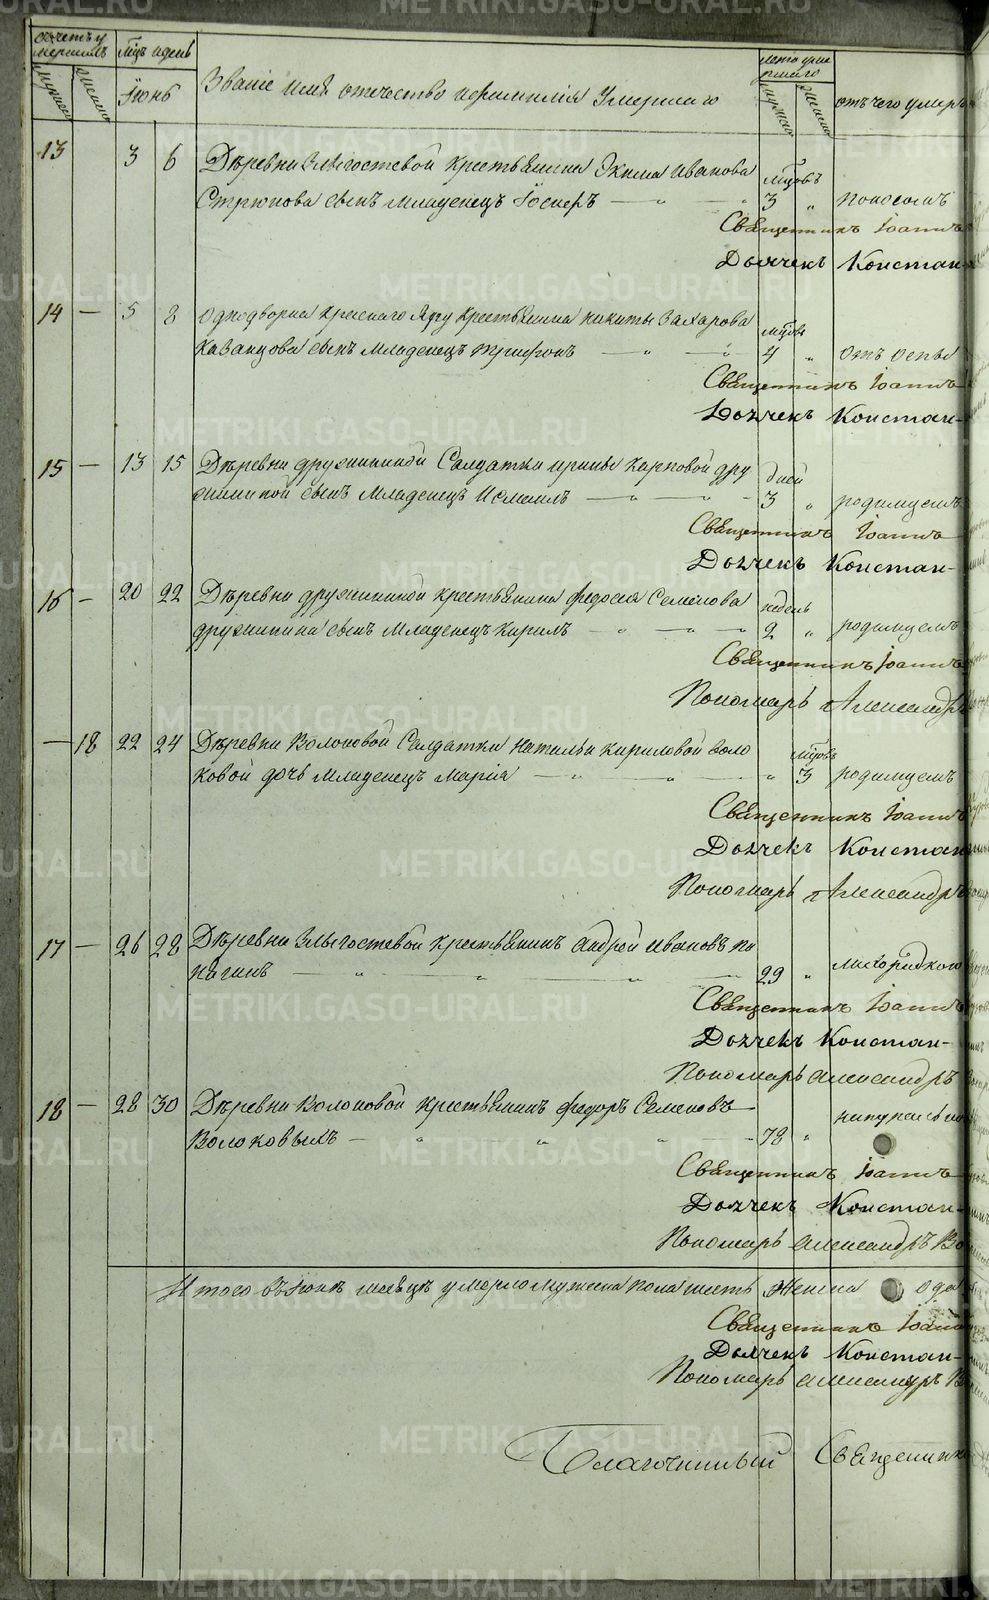 Счетъ умершихъ
Мцъ и день
Звание имя отечество и фамилия умершаго
Лета умершаго
отъ чего умеръ
Июнь
13 3 6 Деревни Злыгостевой крестьянина Екима Иванова
мцовъ
Стрюкова сынъ младенецъ Иосифъ — „ — „ 3 „ поносомъ
Священникъ Iоаннъ
Дьячекъ Констан-
14 — 5 8 однодворка красного Яру крестьянина Никиты Захарова
мцовъ
Казанцова сынъ младенецъ Трифонъ — „ — „ 4 „ отъ оспы
Священникъ Iоаннъ
Дьячекъ Констан-
15 — 13 15 Деревни дружининой Салдатки ирины Карповой дру
дней
жининой сынъ младенецъ Исмаилъ — „ — „ 3 „ родимцемъ
Священникъ Iоаннъ
Дьячекъ Констан-
16 — 20 22 Деревни дружининой крестьянина Федосея Семенова
недель
дружинина сынъ младенецъ Кирилъ — „ — „ — „ 2 „ родимцемъ
Священникъ Iоаннъ
Пономарь Александръ
— 18 22 24 Деревни Волоковой Салдатки Натальи Кириловой воло
мцовъ
ковой дочь младенецъ Мария — „ — „ — „ 3 родимцемъ
Священникъ Iоаннъ
Дьячекъ Констан
Пономарь Александръ
17 — 26 28 Деревни Злыгостевой крестьянинъ Андрей Ивановъ
— „ — „ — „ — 29 „
Священникъ Iоаннъ
Дьячекъ Констан-
Пономарь Александръ
18 — 28 30 Деревни Волоковой крестьянинъ Федоръ Семеновъ
Волоковыхъ — „ „ „ — 78 „
Священникъ Iоаннъ
Дьячекъ Констан-
Пономарь Александръ Во
Итого въ Июне месяце умерло мужеска пола шесть женска одна
Священникъ Iоаннъ
Дьячекъ Констан-
Пономарь Александръ В
Благочинный Священникъ
METRIKI.GASO-URAL.RU